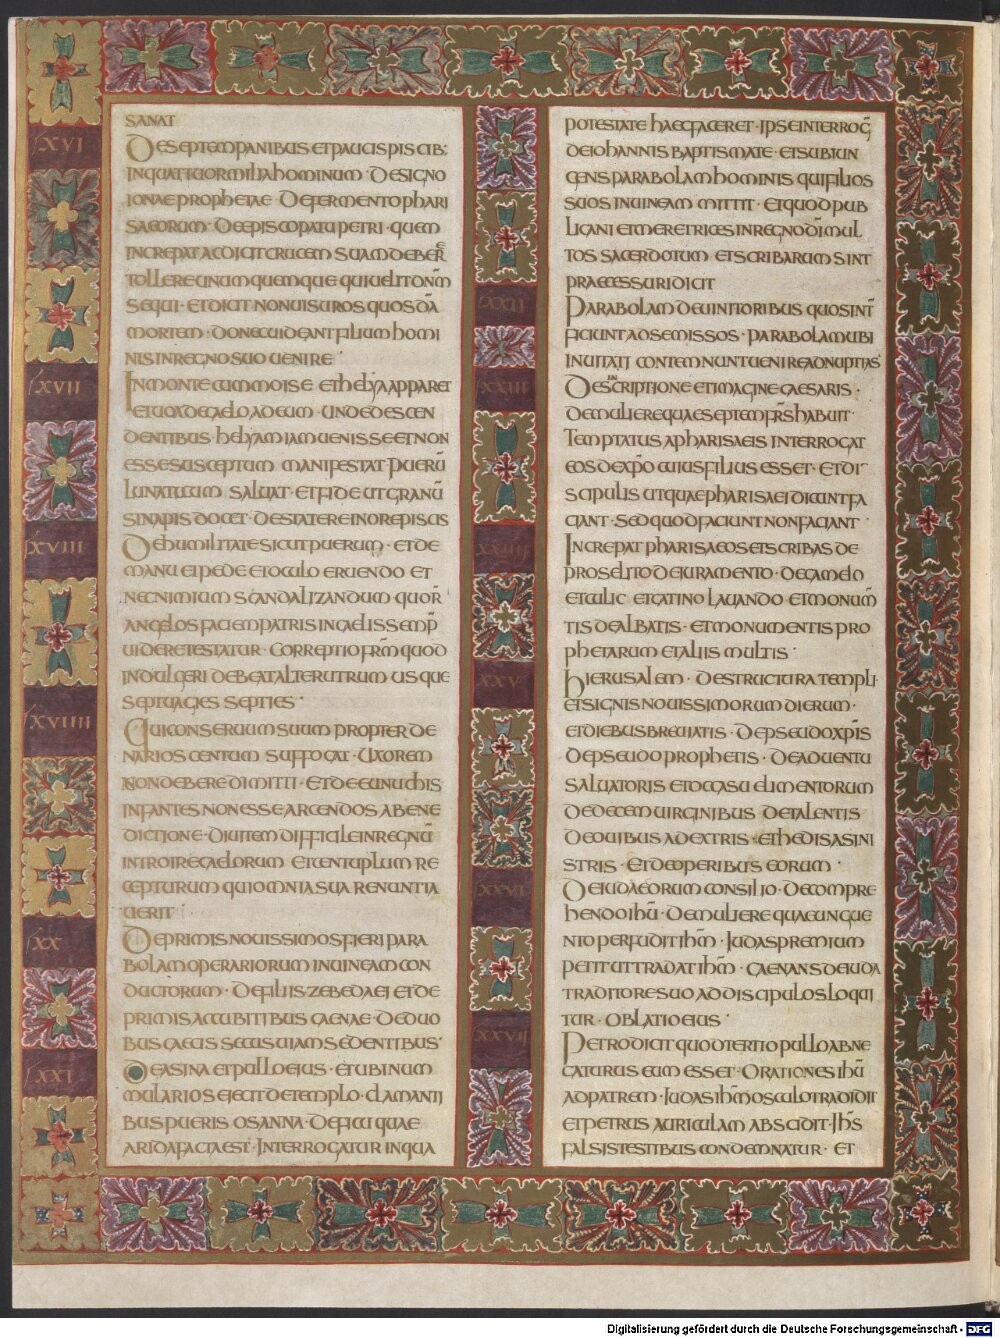 SANAT
XVI
DESEPTEMPANIBUS ET PAUCIS PISCIB;
INQUATTUOR MILIA HOMINUM · DESIGNO
IONAE PROPHETAE · DEFERMENTO PHARI
SAEORUM · DEEPISCOPATU PETRI · QUEM
INCREPAT AC DICIT CRUCEM SUAM DEBERE
TOLLERE UNUMQUEMQUE QUI UELIT DNM
SEQUI · ET DICIT NON UISUROS QUOSDA
MORTEM · DONEC UIDEANT FILIUM HOMI
NIS IN REGNO SUO UENIRE ·
XVII
IN MONTE CUM MOISE ET HELYA APPARET
ET UOX DE CAELO AD EUM · UNDE DESCEN
DENTIBUS HELYAM IAM UENISSE ET NON
ESSE SUSCEPTUM MANIFESTAT PUERU
LUNATICUM SALUAT · ET FIDE UT GRANU
SINAPIS DOCET · DE STATERE IN ORE PISCIS
XVIII
DE HUMILITATE SICUT PUERUM · ET DE
MANU ET PEDE ET OCULO ERUENDO ET
NEC NIMIUM SCANDALIZANDUM QUOR
ANGELOS FACIEM PATRIS IN CAELIS SEMP
UIDERE TESTATUR · CORREPTIO FRM QUOD
INDULGERI DEBEAT ALTERUTRUM USQUE
SEPTUAGIES SEPTIES ·
XVIIII
QUI CONSERUUM SUUM PROPTER DE
NARIOS CENTUM SUFFOCAT · UXOREM
NON DEBERE DIMITTI · ET DE EUNUCHIS
INFANTES NON ESSE ARCENDOS A BENE
DICTIONE · DIUITEM DIFFICILE IN REGNU
INTROIRE CAELORUM ET CENTUPLUM RE
CEPTURUM QUI OMNIA SUA RENUNTIA
UERIT
XX
DE PRIMIS NOUISSIMOS FIERI PARA
BOLAM OPERARIORUM IN UINEAM CON
DUCTORUM · DE FILIIS ZEBEDAEI ET DE
PRIMIS ACCUBITIBUS CAENAE · DE DUO
BUS CAECIS SECUS UIAM SEDENTIBUS ·
XXI
DE ASINA ET PULLO EIUS · ET UBI NUM
MULARIOS EIECIT DE TEMPLO · CLAMANTI
BUS PUERIS OSANNA · DE FICU QUAE
ARIDA FACTA EST · INTERROGATUR IN QUA
POTESTATE HAEC FACERET · IPSE INTERROG
DE IOHANNIS BAPTISMATE · ET SUBIUN
GENS PARABOLAM HOMINIS QUI FILIOS
SUOS IN UINEAM MITTIT · ET QUOD PUB
LICANI ET MERETRICES IN REGNO DI MUL
TOS SACERDOTUM ET SCRIBARUM SINT
PRAECESSURI DICIT
XXII
PARABOLAM DE UINITORIBUS QUOS INT
FICIUNT AD SE MISSOS · PARABOLAM UBI
INUITATI CONTEMNUNT UENIRE AD NUPTIAS
XXIII
DE INSCRIPTIONE ET IMAGINE CAESARIS ·
DE MULIERE QUAE SEPTEM FRS HABUIT ·
TEMPTATUS A PHARISAEIS INTERROGAT
EOS DE XPO CUIUS FILIUS ESSET · ET DI
SCIPULIS UT QUAE PHARISAEI DICUNT FA
CIANT · SED QUOD FACIUNT NON FACIANT ·
XXIIII
INCREPAT PHARISAEOS ET SCRIBAS DE
PROSELITO DE IURAMENTO · DE CAMELO
ET CULIC ET CATINO LAUANDO ET MONUM
TIS DEALBATIS · ET MONUMENTIS PRO
PHETARUM ET ALIIS MULTIS ·
XXV
HIERUSALEM · DESTRUCTURA TEMPLI
ET SIGNIS NOUISSIMORUM DIERUM ·
ET DIEBUS BREUIATIS · DE PSEUDO XPIS
DE PSEUDO PROPHETIS · DE ADUENTU
SALUATORIS ET OCCASU ELIMENTORUM
DE DECEM UIRGINIBUS DE TALENTIS
DE OUIBUS A DEXTRIS · ET HEDIS A SINI
STRIS · ET DE OPERIBUS EORUM ·
XXVI
DE IUDAEORUM CONSILIO · DE COMPRE
HENDO IHU · DE MULIERE QUAE UNGUE
NTO PERFUDIT IHM · IUDAS PREMIUM
PETIT UT TRADAT IHM · CAENANS DE IUDA
TRADITORE SUO AD DISCIPULOS LOQUI
TUR · OBLATIO EIUS ·
XXVII
PETRO DICIT QUOD TERTIO PULLO ABNE
GATURUS EUM ESSET · ORATIONES IHU
AD PATREM · IUDAS IHM OSCULO TRADIDIT
ET PETRUS AURICULAM ABSCIDIT · IHS
FALSIS TESTIBUS CONDEMNATUR · ET
Digitalisierung gefördert durch die Deutsche Forschungsgemeinschaft - DFG